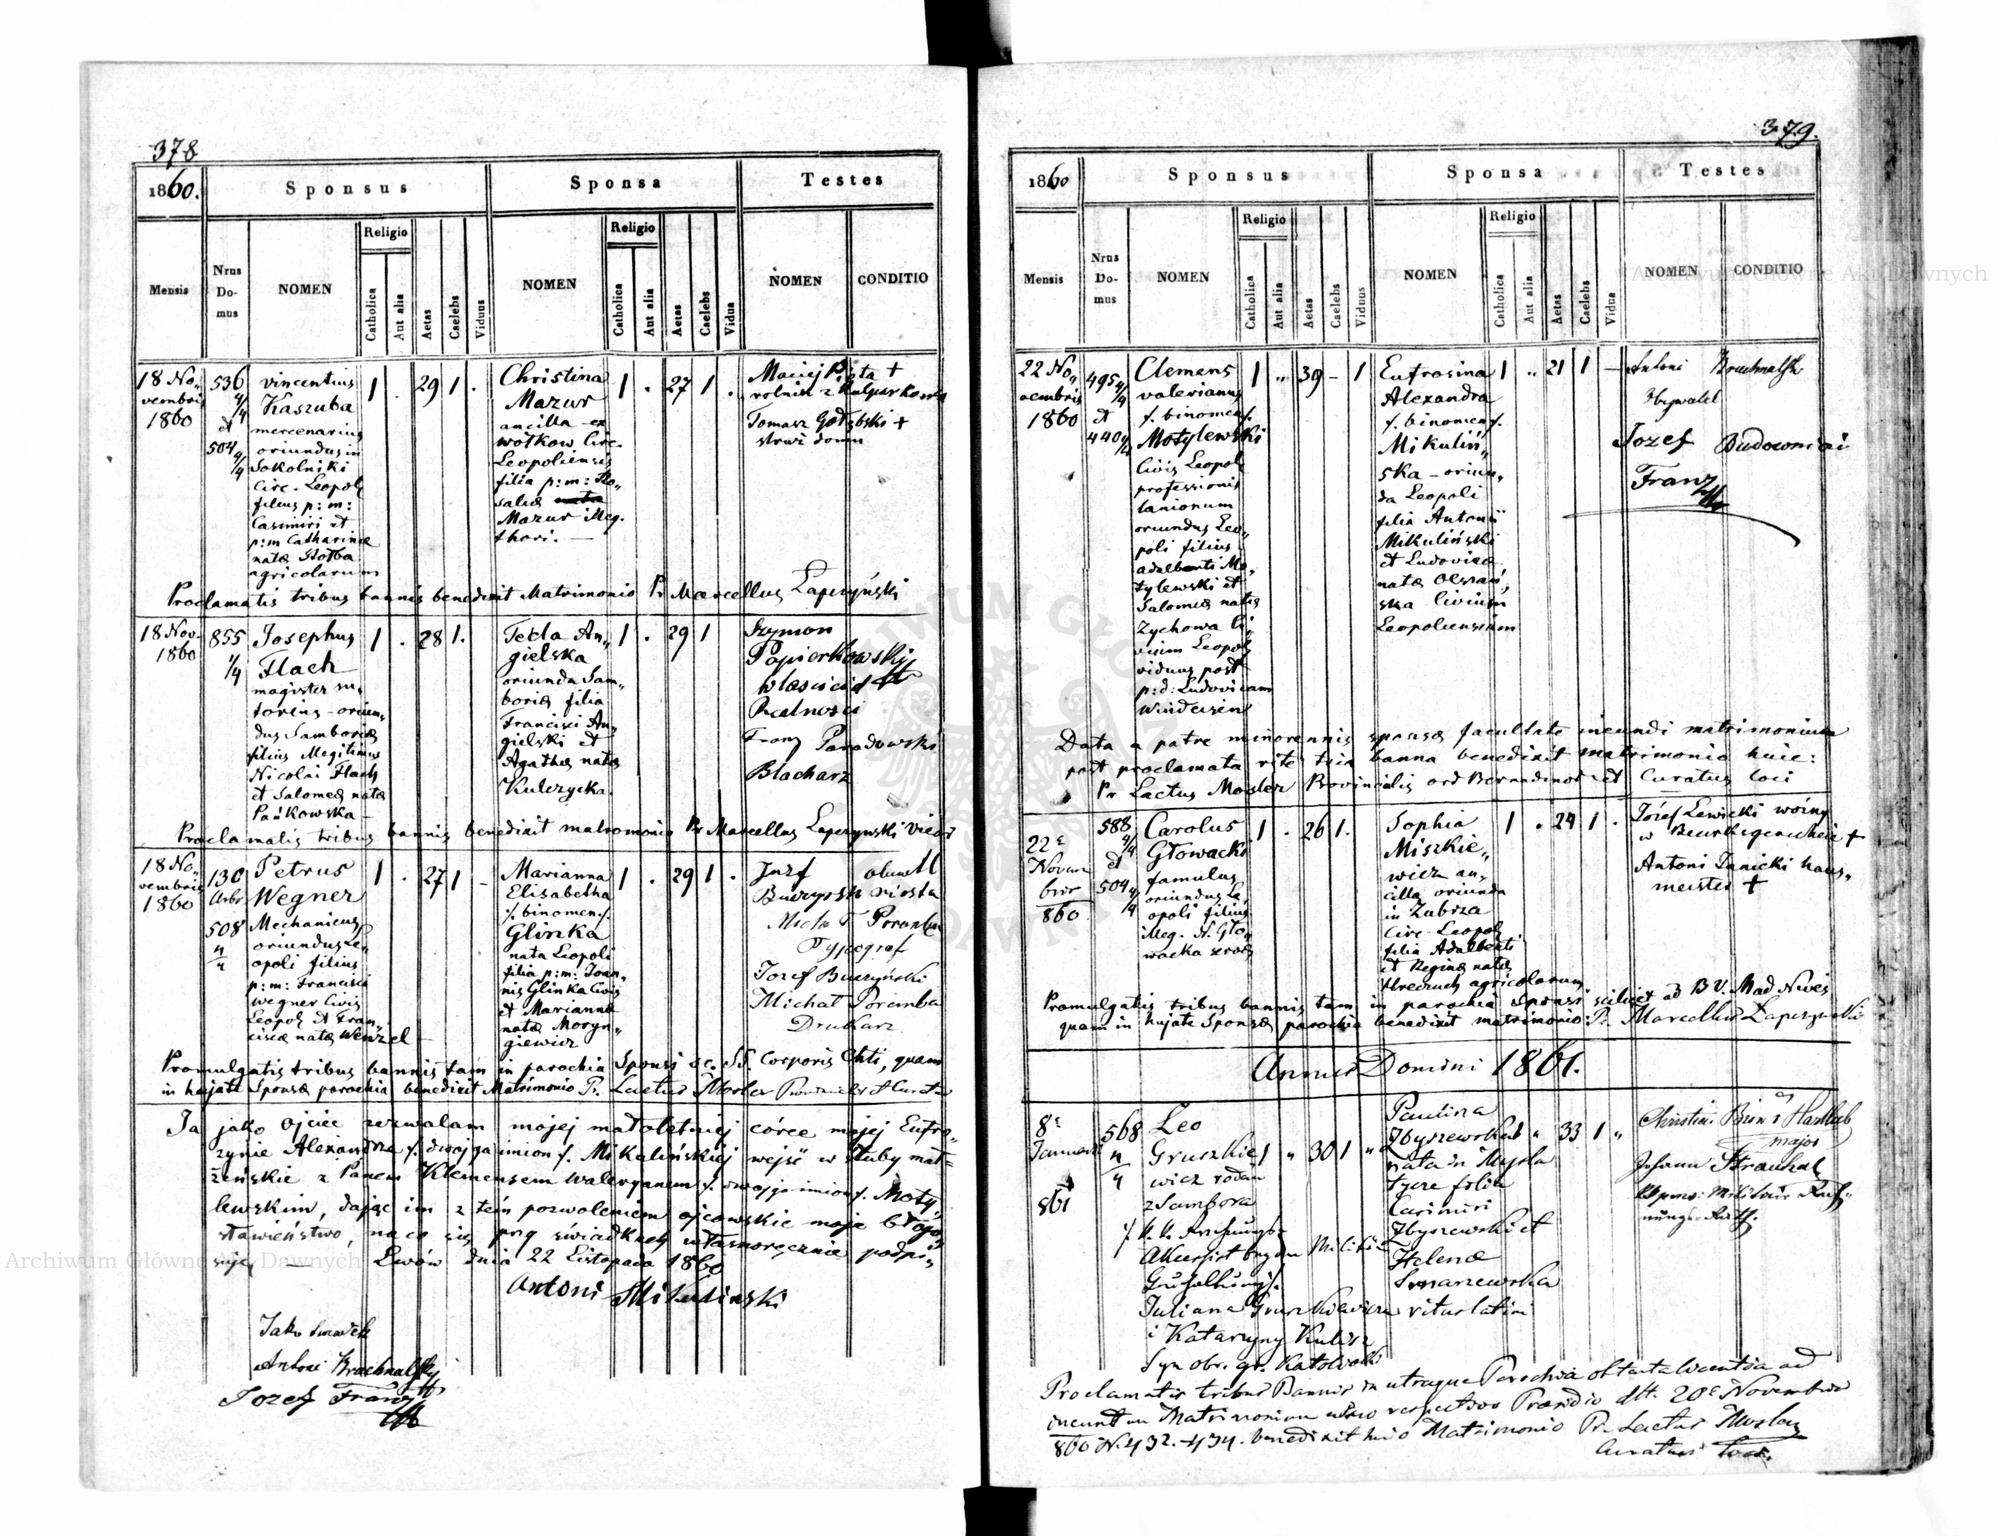 378
1860.
Sponsus
Sponsa
Testes
Mensis
Nrus Do- mus
NOMEN
Religio
Catholica
Aut alia
Aetas
Caelebs
Viduus
NOMEN
Religio
Catholica
Aut alia
Aetas
Caelebs
Vidua
NOMEN
CONDITIO
18 No„
vembris
1860
536
4/4
et
504 4/4
Vincentius
Kaszuba
mercenarius
oriundus in
Sokolniki
Circ. Leopol
filius p: m:
Casimiri et
p: m Catharinæ
natæ Hołba
agricolarum
1 . 29 1 .
Christina
Mazur
ancilla ex
Wołkow Circ.
Leopoliensis
filia p: m: Ro„
saliæ nata
Mazur illeg.
thori. —
1 . 27 1 .
Maciej +
rolnik z Kulparkowa
Tomasz Gołębski +
stróż domu
Proclamatis tribus bannis benedixit Matrimonio Pr Marcellus Łapczyński
18 Nov.
1860
855
1/4
Josephus
Flach
magister su„
torius - oriun„
dus Samboriæ
filius illegitimus
Nicolai Flach
et Salomeæ natæ
Pańkowska —
1 . 28 1.
Tecla An„
gielska
oriunda Sam„
boriæ filia
Francisci An„
gielski et
Agathæ natæ
Kulczycka.
1 . 29 1
Szymon
Papierkowski
właściciel
Realności
Franz Paradowski
Blacharz
Proclamatis tribus bannis benedixit matrimonio Pr Marcellus Łapczynski Vicar
18 No„
vembris
1860
130
508
4/4
Petrus
Wegner
Mechanicus
oriundus Le„
opoli filius
p: m: Francisci
Wegner Civis
Leopol et Fran„
ciscæ natæ Wenzel —
1 . 27 1 –
Marianna
Elisabetha
/. binomen /.
Glinka
nata Leopoli
filia p: m: Joan„
nis Glinka Civis
et Mariannæ
natæ Moryn„
giewicz
1 . 29 1 .
Jozef Buczyński
Michał Poremba
Drukarz
Promulgatis tribus bannis tam in parochia Sponsi sc. SS. Corporis Chti, quam
in hujate Sponsæ parochia benedixit Matrimonio Pr. Laetus Mosler
Ja jako ojciec zezwalam mojej małoletniej córce mojej Eufro„
zynie Alexandrze /. dwojga imion /. Mikulińskiej wejść w śluby mał„
żeńskie z Panem Klemensem Waleryanem /. dwojga imion /. Moty„
lewskim, dając im z tém pozwoleniem ojcowskie moje błogo„
sławieństwo, na co się przy świadkach własnoręcznie podpi„
suję — Lwów dnia 22 Listopada 1860
Antoni Mikulinski
Jako swiadek
Antoni Brachnalski
Jozef Franz
379.
1860
Sponsus
Sponsa
Testes
Mensis
Nrus Do- mus
NOMEN
Religio
Catholica
Aut alia
Aetas
Caelebs
Viduus
NOMEN
Religio
Catholica
Aut alia
Aetas
Caelebs
Vidua
NOMEN
CONDITIO
22 No„
vembris
1860
495 4/4
et
440 4/4
Clemens
Valerianus
/. binomen /.
Motylewski
Civis Leopol
professionis
lanionum
oriundus Leo„
poli filius
Adalberti Mo„
tylewski et
Salomeæ natæ
Zychowa Ci„
vium Leopol
viduus post
p: d: Ludovicam
1 „ 39 – 1
Eufrosina
Alexandra
/. binomen /.
Mikuliń„
ska – oriun„
da Leopoli
filia Antonii
Mikuliński
et Ludovicæ
natæ
Civium
Leopoliensium
1 „ 21 1 –
Antoni Brachnalski
Obywatel
Jozef Budowniczi
Franz
Data a patre minorennis sponsæ facultate ineundi matrimonium
post proclamata rite tria banna benedixit matrimonio huic:
Pr Laetus Mosler Provincialis ord Bernardinor et Curatus loci
22 Novem
bris
860
588
4/4
et
504 4/4
Carolus
Głowacki
famulus
oriundus Le„
opoli filius
illeg. N. Gło„
wacka
1 . 26 1.
Sophia
Miszkie„
wicz an„
cilla oriunda
in Zubrza
Circ. Leopol
filia Adalberti
et Reginæ natæ
Hreczuch agricolarum
1 . 24 1 .
Józef Lewicki woźny
w +
Antoni Janicki haus„
meister +
Promulgatis tribus bannis tam in parochia Sponsi scilicet ad B V. Mad Nives
quam in hujate Sponsæ parochia benedixit matrimonio: Pr. Marcellus Łapczynski
Annus Domini 1861.
8
Januarii
861
568
4/4
Leo
Gruszkie„
wicz rodem
z Sambora
Juliana Gruszkiewicza
i Kataryny Kulisz
Syn obr. gr. Katolicki
1 „ 30 1 „
Paulina
Zbyszewska
nata in Mysla
tycze filia
Casimiri
Zbyszewski et
Helenæ
ritus latini
„ 33 1 „
Christi.
major
Johann
Proclamatis tribus Bannis in utraque Parochia obtenta licentia ad
ineundum Matrimonium respectivo Præsidio dtt. 20 Novembris
860 N. 432.-434. benedixit huic Matrimonio Pr. Laetus Mosler
Curatus loci.
Archiwum Główne Akt Dawnych
Archiwum Główne Akt Dawnych